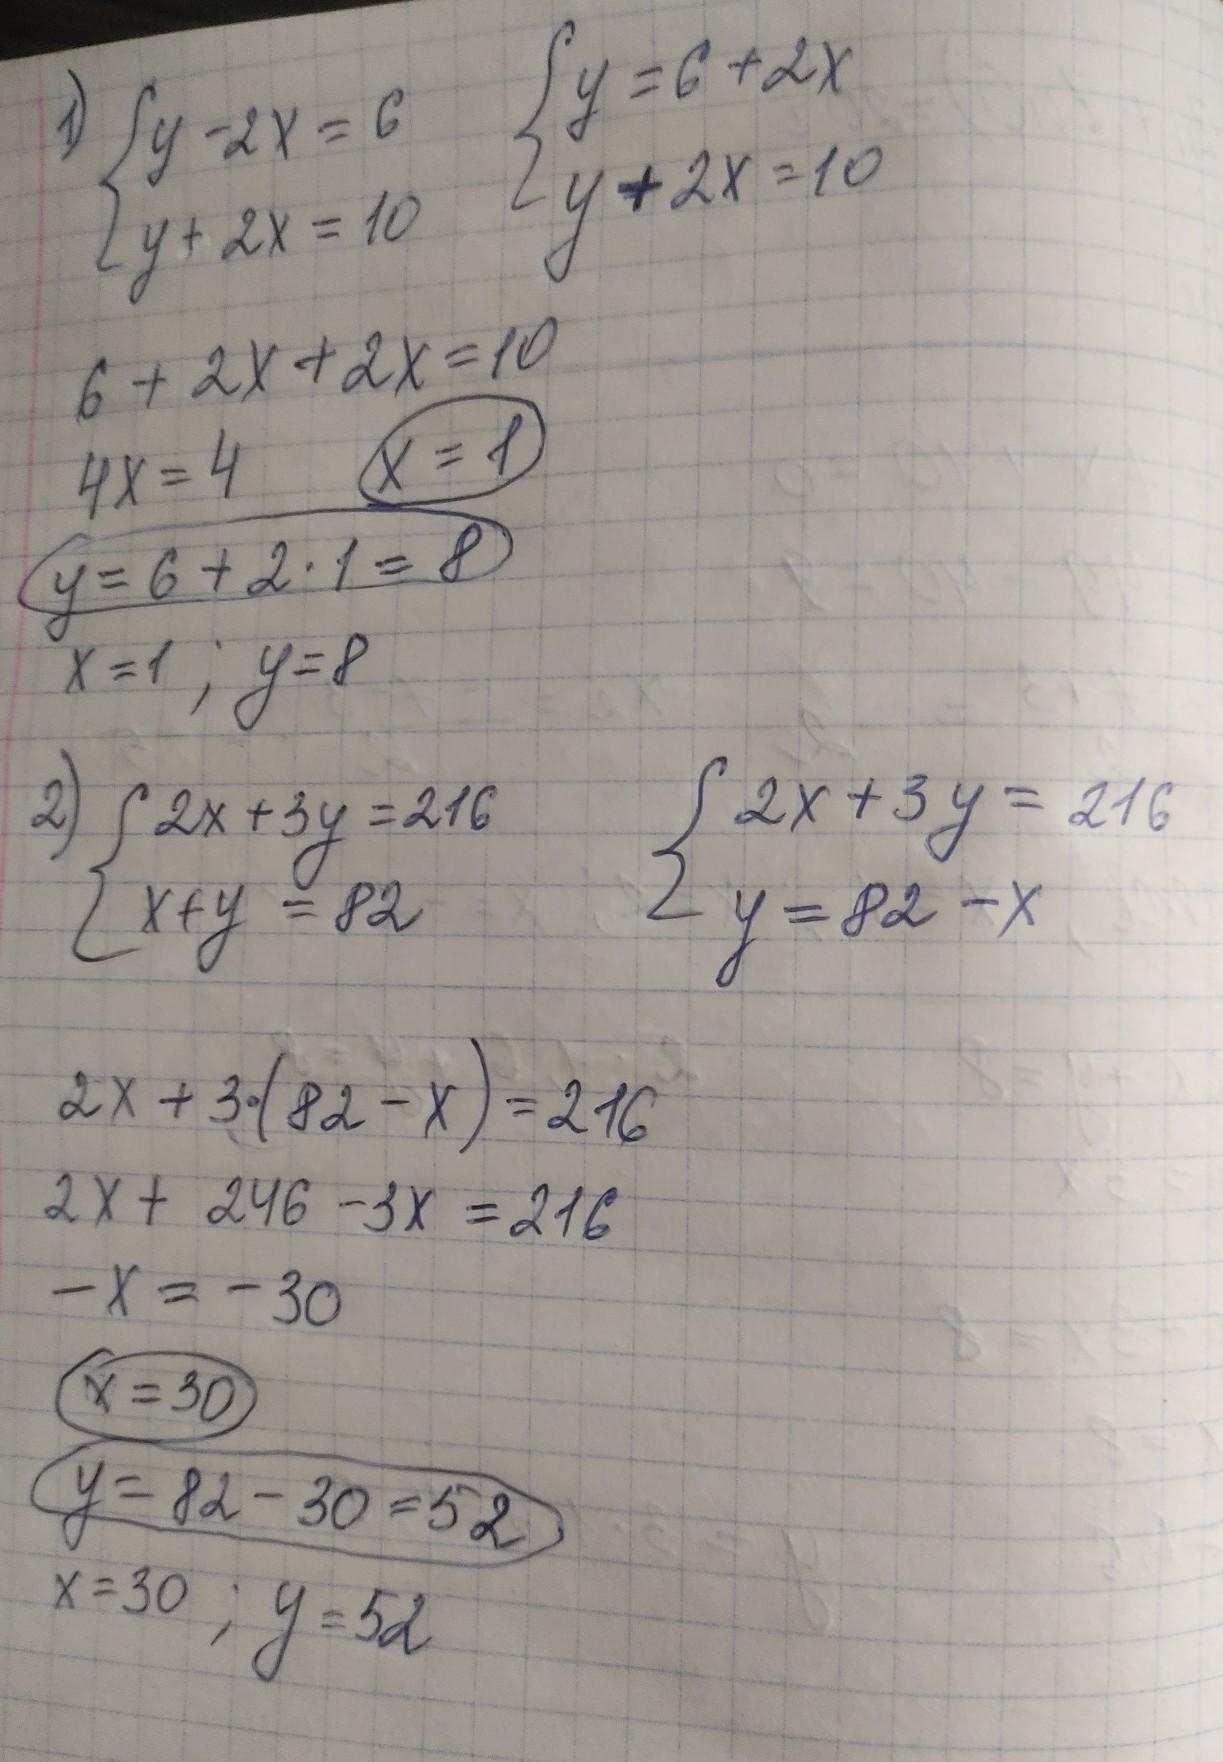 1) { y - 2x = 6 { y = 6 + 2x
y + 2x = 10 y + 2x = 10
6 + 2x + 2x = 10
4x = 4 x = 1
y = 6 + 2 · 1 = 8
x = 1 ; y = 8
2) { 2x + 3y = 216 { 2x + 3y = 216
x + y = 82 y = 82 - x
2x + 3·(82 - x) = 216
2x + 246 - 3x = 216
-x = -30
x = 30
y = 82 - 30 = 52
x = 30 ; y = 52